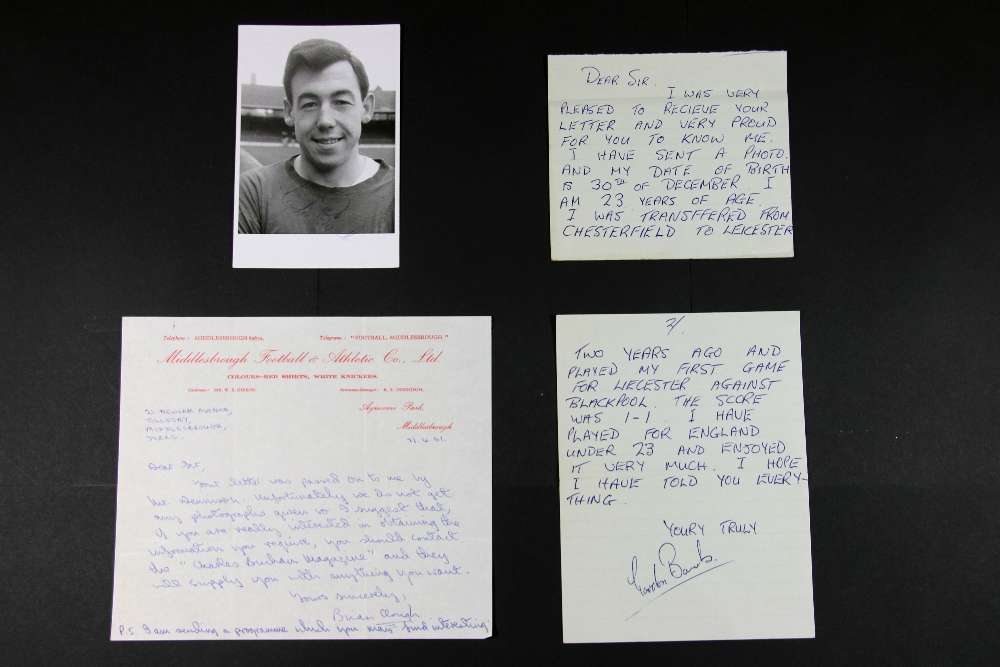 DEAR SIR.
I WAS VERY
PLEASED TO RECIEVE YOUR
LETTER AND VERY PROUD
FOR YOU TO KNOW ME.
I HAVE SENT A PHOTO.
AND MY DATE OF BIRTH
IS 30TH OF DECEMBER I
AM 23 YEARS OF AGE.
I WAS TRANSFFERED FROM
CHESTERFIELD TO LEICESTER
2/.
TWO YEARS AGO AND
PLAYED MY FIRST GAME
FOR LEICESTER AGAINST
BLACKPOOL. THE SCORE
WAS 1-1 I HAVE
PLAYED FOR ENGLAND
UNDER 23 AND ENJOYED
IT VERY MUCH. I HOPE
I HAVE TOLD YOU EVERY-
THING.
YOURY TRULY
Gordon Banks.
Telephone: MIDDLESBROUGH
Telegrams: "FOOTBALL, MIDDLESBROUGH"
Middlesbrough Football & Athletic Co., Ltd.
COLOURS-RED SHIRTS, WHITE KNICKERS.
Ayresome Park,
Middlesbrough
MIDDLESBROUGH,
Dear Sir,
Your letter was passed on to me by
Mr Dennison. Unfortunately we do not get
any photographs given so I suggest that,
if you are really interested in obtaining the
information you require, you should contact
the "Charles Buchan Magazine" and they
will supply you with anything you want.
Yours sincerely,
Brian Clough
P.S. I am sending a programme which you may find interesting